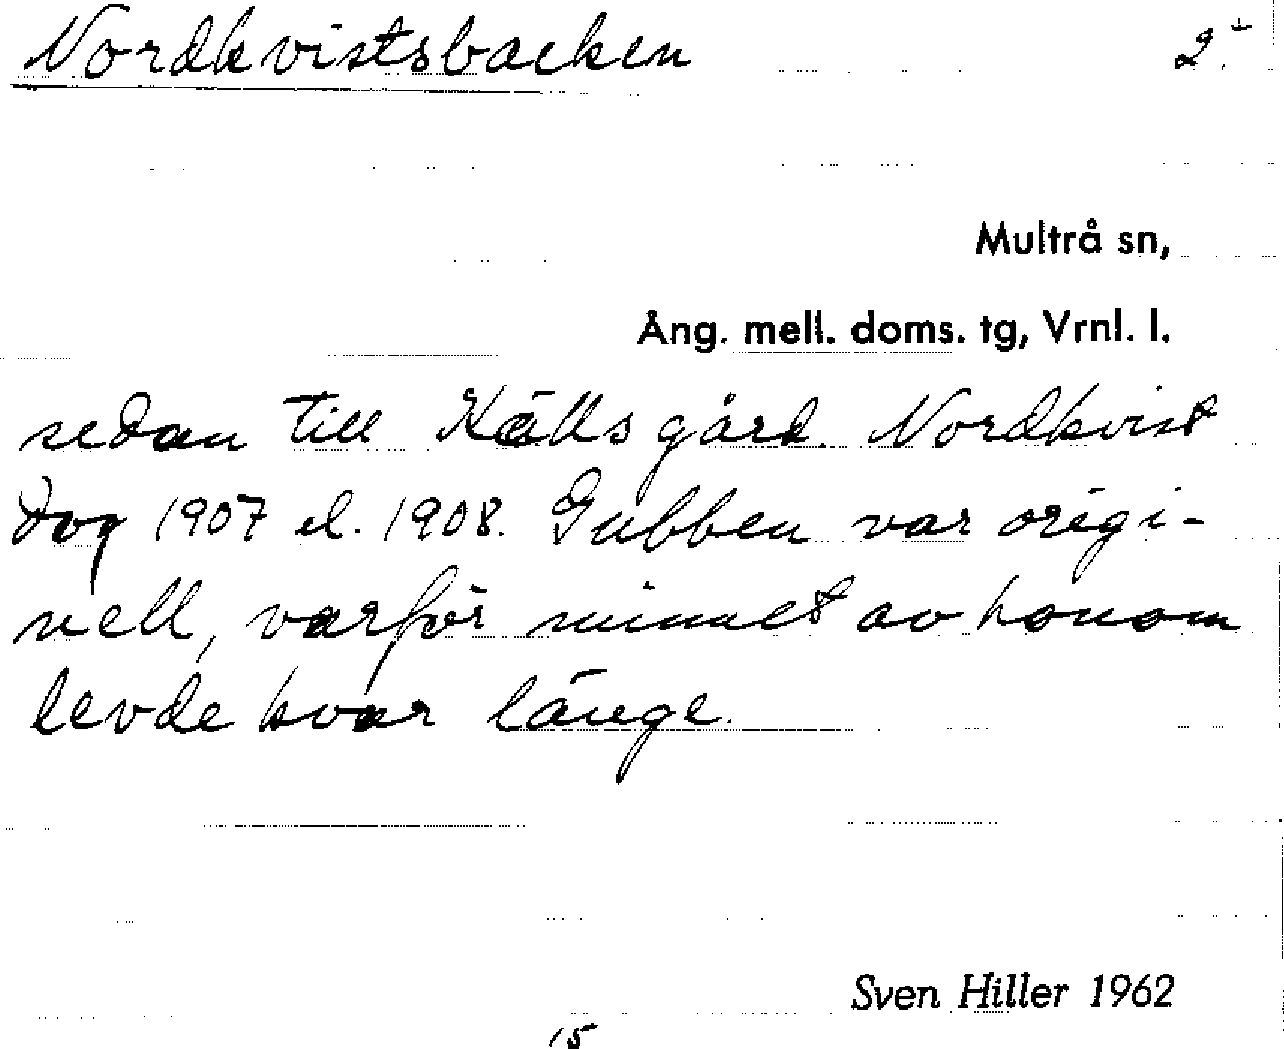 Nordkvistsbacken 2.
Multrå sn,
Ång. mell. doms. tg, Vrnl. l.
sedan till Källsgård. Nordkvist
dog 1907 el. 1908. Gubben var origi-
nell, varför minnet av honom
levde kvar länge.
Sven Hiller 1962
15